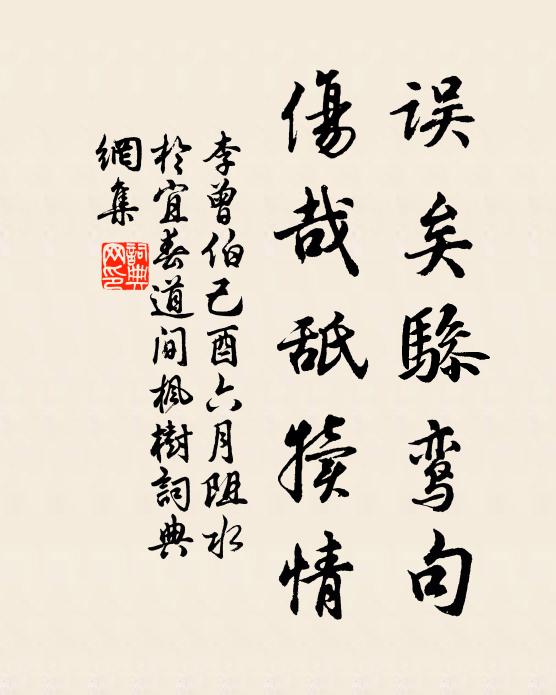 误矣骖鸾句
傷哉舐犢情
李曾伯己酉六月阻水
於宜春道间枫樹詞典
網集
詞典
网印